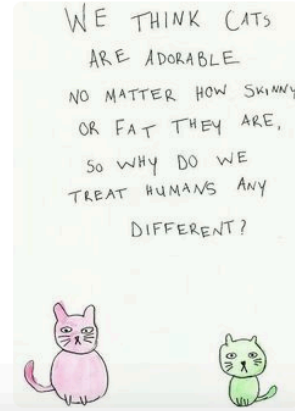 WE THINK CATS
ARE ADORABLE
NO MATTER HOW SKINNY
OR FAT THEY ARE,
SO WHY DO WE
TREAT HUMANS ANY
DIFFERENT?